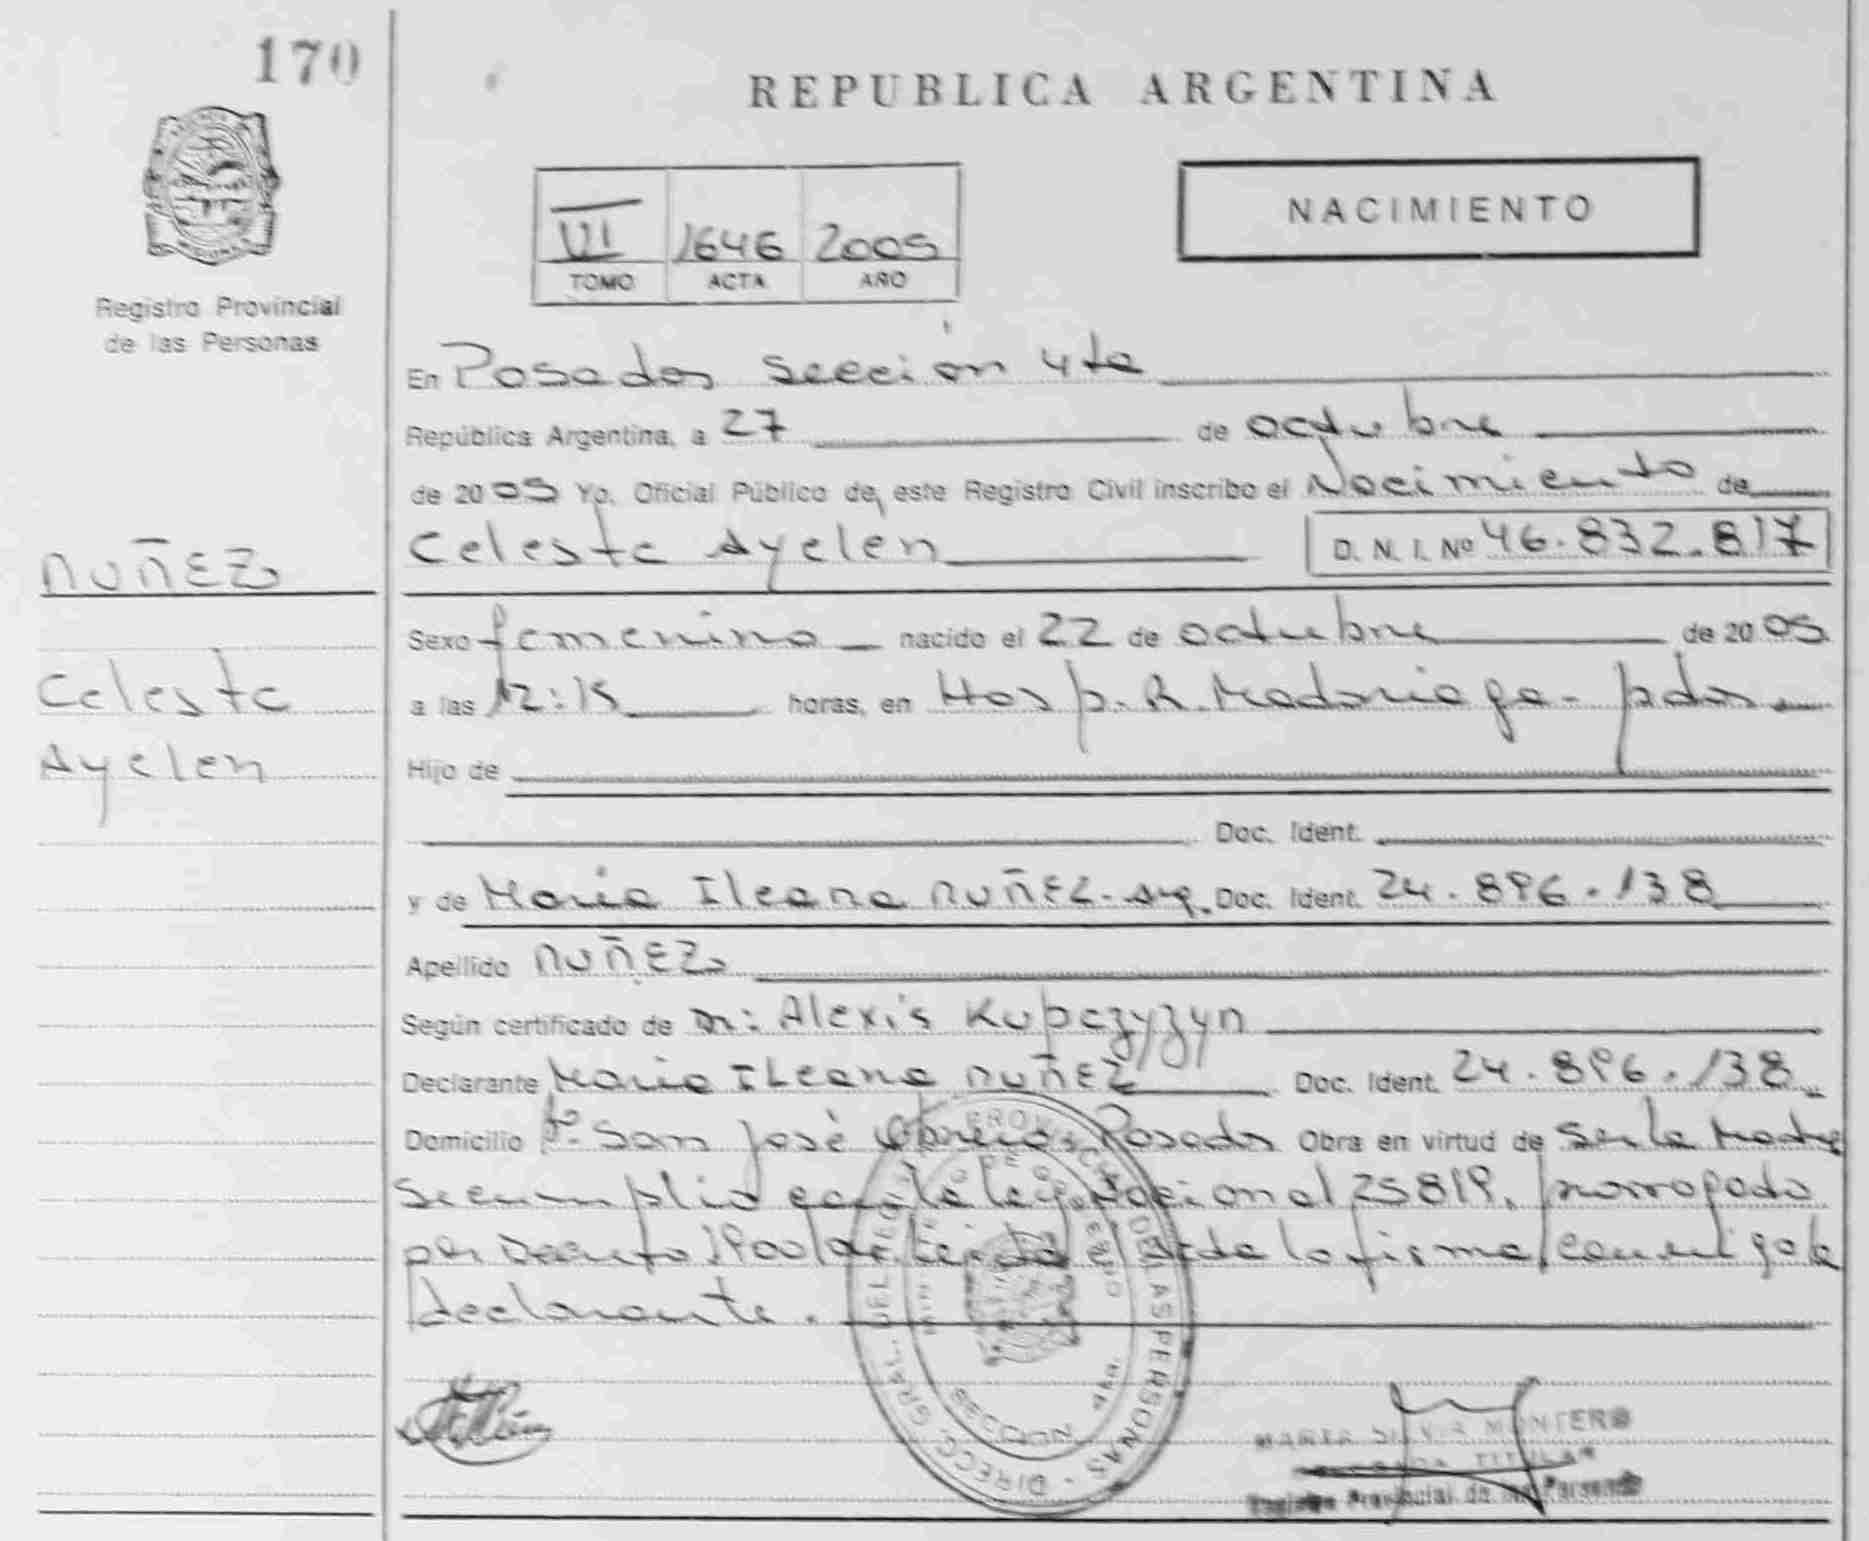 170
REPUBLICA ARGENTINA
NACIMIENTO
VI 1646 2005
TOMO ACTA AÑO
Registro Provincial
de las Personas
En Posadas sección 4ta
República Argentina, a 27 de octubre
de 2005 Yo, Oficial Público de este Registro Civil inscribo el Nacimiento de
NUÑEZ
Celeste Ayelen D. N. I. Nº 46.832.817
Sexo femenino nacido el 22 de octubre de 2005
Celeste
a las 12:15 horas, en Hosp. R. Madariaga - pdas
Ayelen
Hijo de
Doc. Ident.
y de Maria Ileana NUÑEZ - arg. Doc. Ident. 24.896.138
Apellido NUÑEZ
Según certificado de Dr: Alexis Kupczyzyn
Declarante Maria Ileana NUÑEZ Doc. Ident. 24.896.138
Domicilio Bº San José Obrero, Posadas Obra en virtud de Ser la Madre
Se cumplio con la ley nacional 25819, prorrogada
por Decreto 1900/04 Leida el acta la firma conmigo la
declarante.
DIRECC. GRAL. DEL REG. PROVINCIAL DE LAS PERSONAS
MINISTERIO DE GOBIERNO
SECCION
MARIA SILVIA MONTERO
TITULAR
Registro Provincial de las Personas